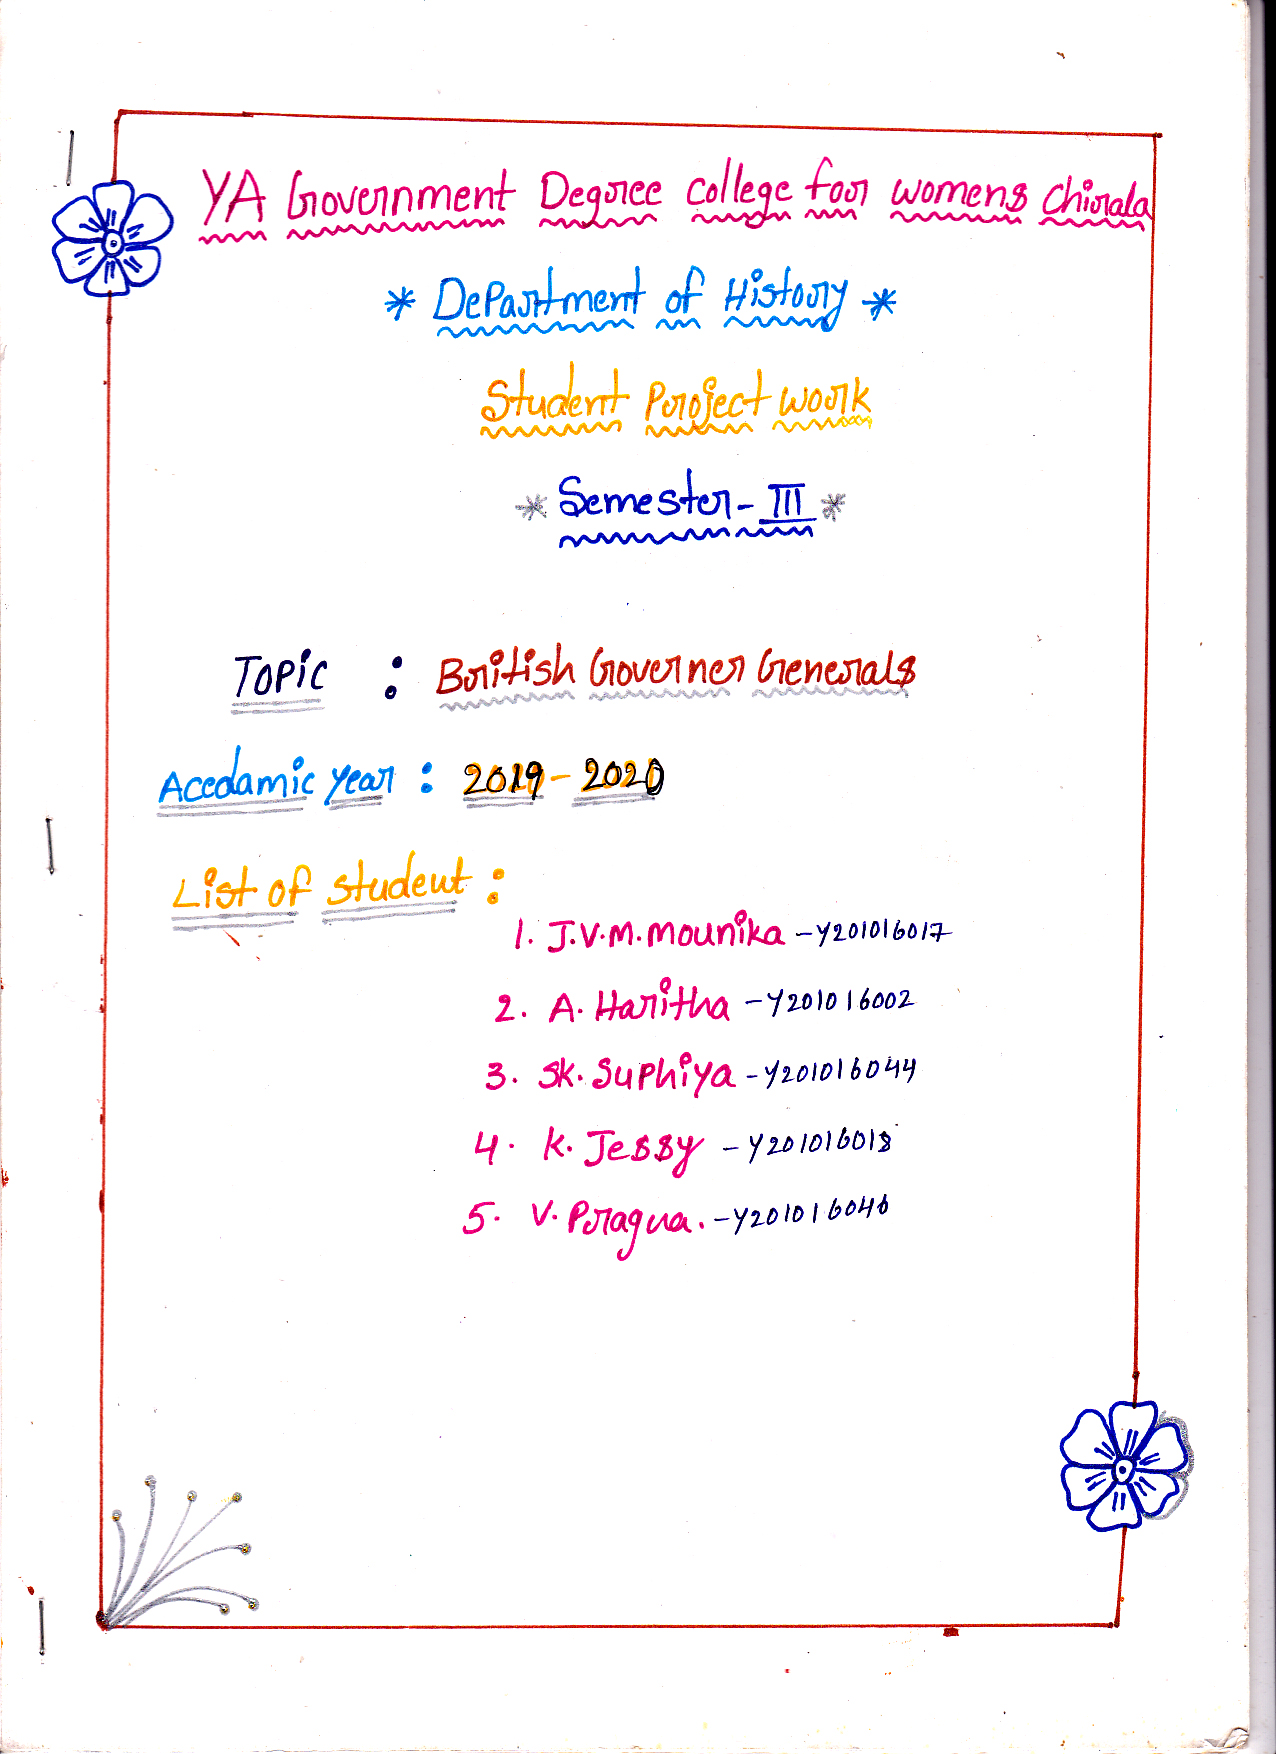 YA Government Degree college for womens chirala
* Department of History *
Student Project work
* Semester - III *
Topic : British Governer Generals
Acedamic year : 2019 - 2020
List of student :
1. J.V.M. Mounika - Y201016017
2. A. Haritha - Y201016002
3. Sk. Suphiya - Y201016044
4. K. Jessy - Y201016018
5. V. Pragna. - Y201016046